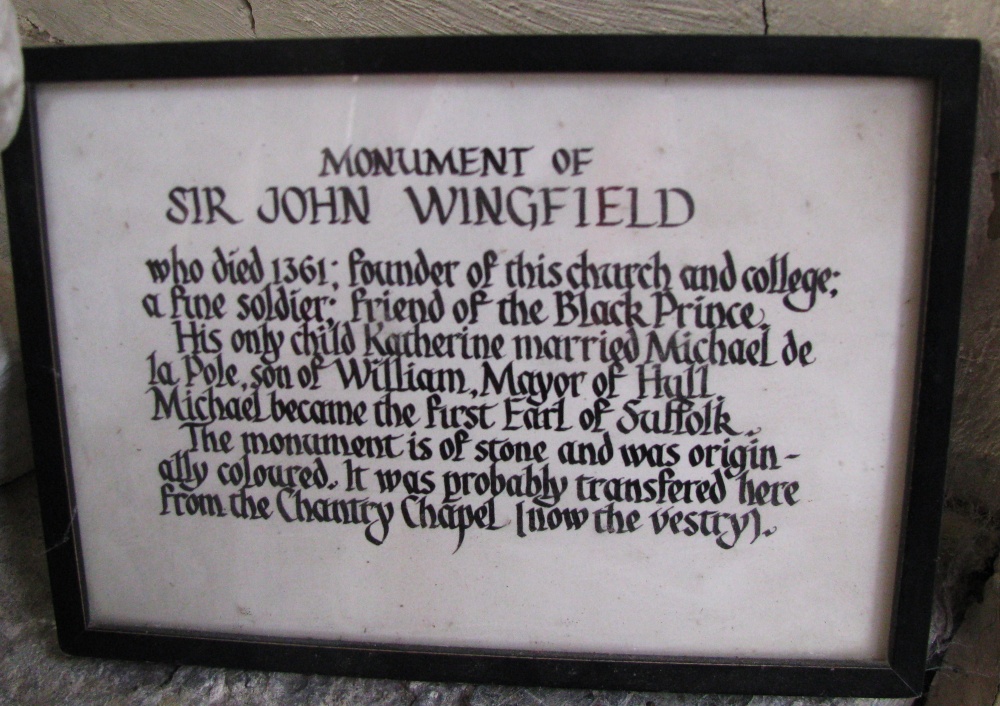 MONUMENT OF
SIR JOHN WINGFIELD
who died 1361; founder of this church and college;
a fine soldier; friend of the Black Prince.
His only child Katherine married Michael de
la Pole, son of William, Mayor of Hull.
Michael became the first Earl of Suffolk.
The monument is of stone and was origin-
ally coloured. It was probably transfered here
from the Chantry Chapel [now the vestry).